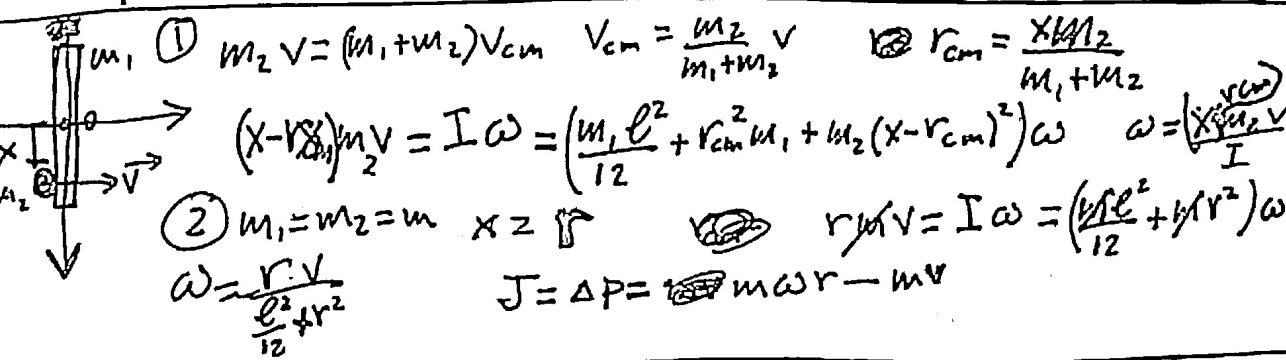 m₁ ① m₂ v = (m₁+m₂)Vcm Vcm = m₂/(m₁+m₂) v rcm = xm₂/(m₁+m₂)
(x-rcm)m₂v = Iω = (m₁ℓ²/12 + rcm²m₁ + m₂(x-rcm)²)ω ω = (x-rcm)m₂v/I
x
m₂ v⃗
② m₁=m₂=m x = r rmv = Iω = (mℓ²/12 + mr²)ω
ω = r·v/(ℓ²/12 + r²) J = Δp = mωr - mv